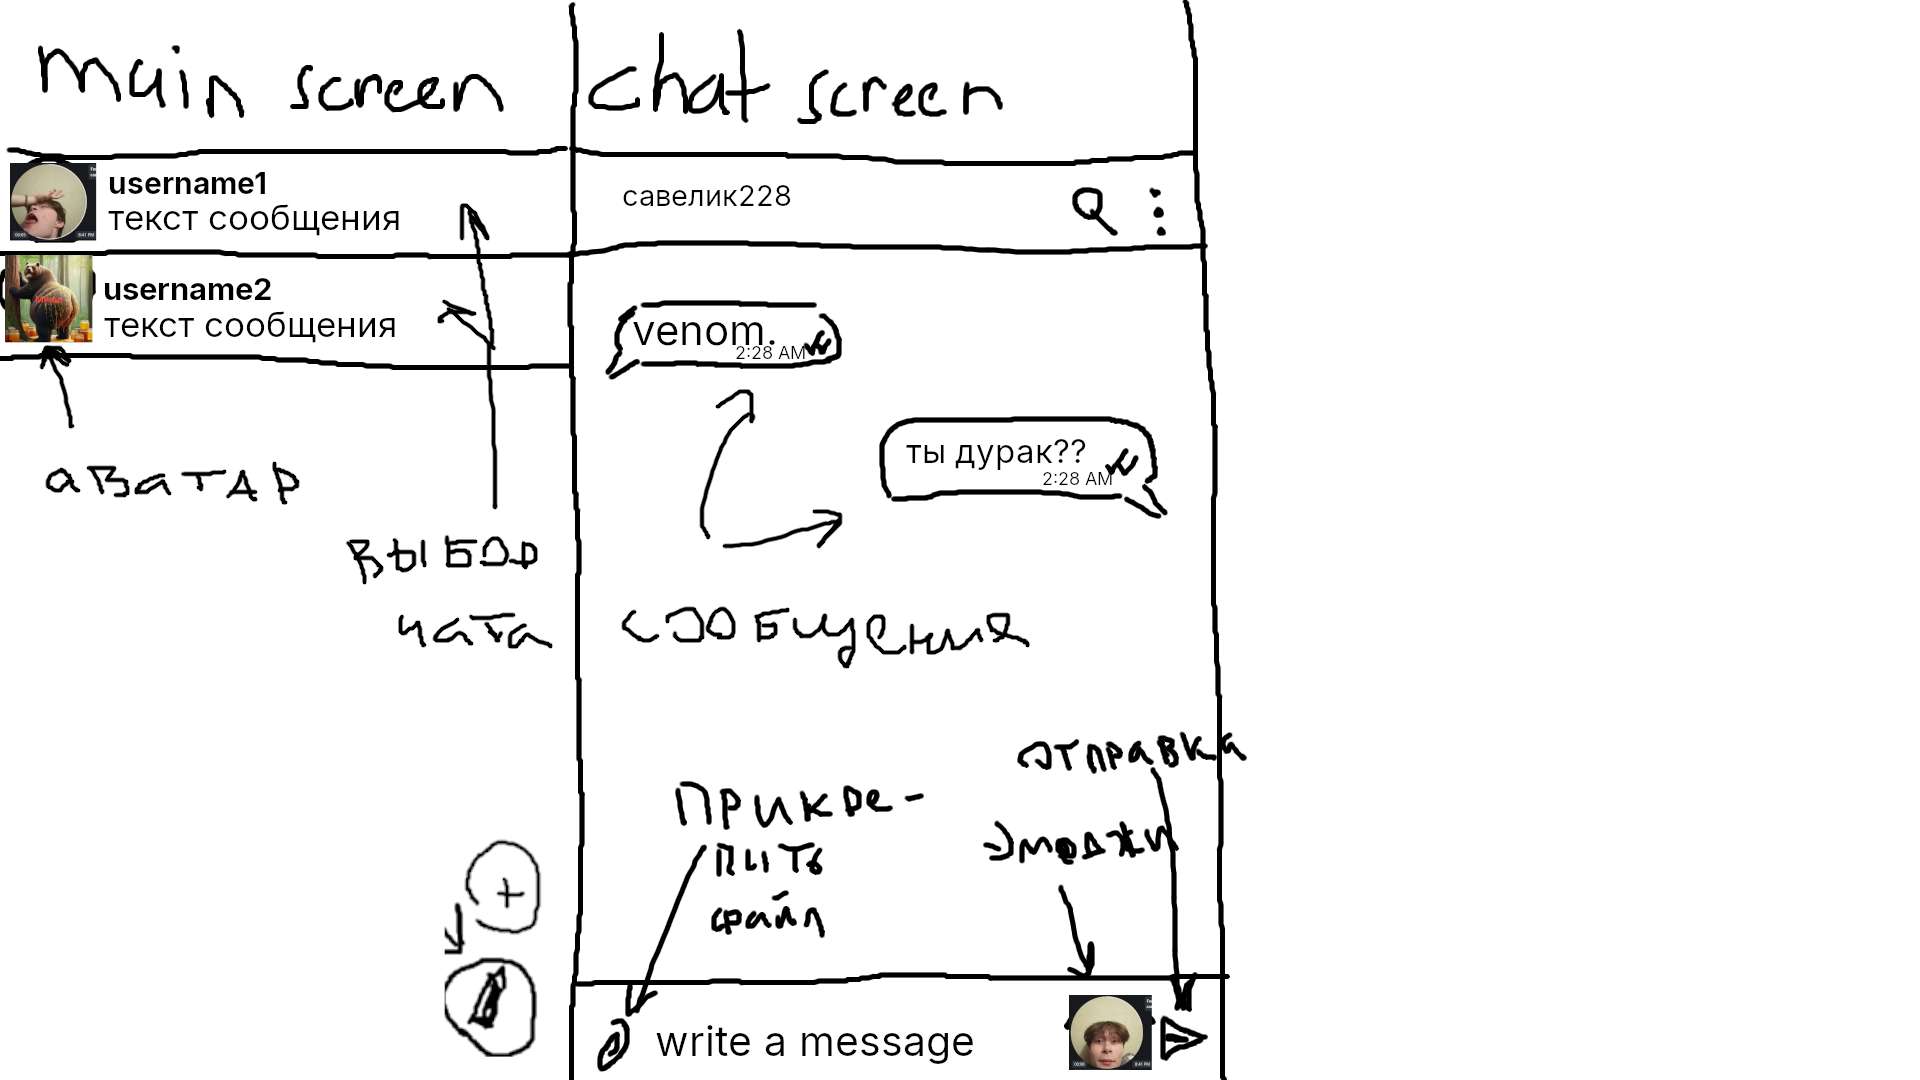 main screen
username1
текст сообщения
username2
текст сообщения
аватар
выбор
чата
chat screen
савелик228
venom.
2:28 AM
ты дурак??
2:28 AM
сообщения
отправка
прикре-
пить
файл
эмоджи
write a message